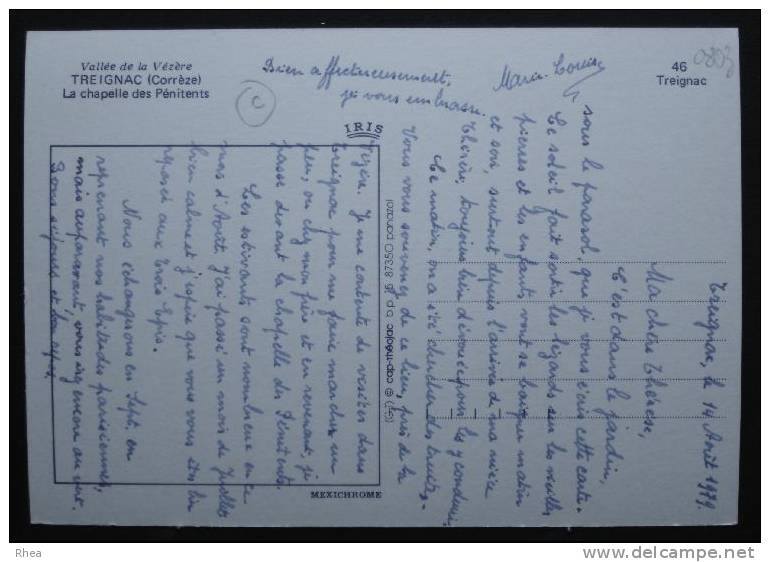 Vallée de la Vézère
TREIGNAC (Corrèze)
La chapelle des Pénitents
46
Treignac
0803
C
IRIS
MEXICHROME
cap-théojac
87350 panazol
Treignac, le 14 Août 1979.
Ma chère Thérèse,
C'est dans le jardin,
sous le parasol, que je vous écris cette carte.
Le soleil fait sortir les lézards sur les vieilles
pierres et les enfants vont se baigner matin
et soir, surtout depuis l'arrivée de ma nièce
Thérèse, toujours bien dévouée pour les y conduire.
Ce matin, on a été chercher des truites.
Vous vous souvenez de ce lieu, près de la
Vézère. Je me contente de visites dans
Treignac pour me faire marcher un
peu, ou chez mon frère et en revenant, je
passe devant la chapelle des Pénitents.
Les estivants sont nombreux en ce
mois d'Août. J'ai passé un mois de Juillet
bien calme et j'espère que vous vous êtes bien
reposée aux Trois Epis.
Nous échangerons en Sept. en
reprenant nos habitudes parisiennes,
mais auparavant, vous irez encore au vert.
Bons séjours et bon
Bien affectueusement,
je vous embrasse.
Marie-Louise
Rhea
delcampe.net